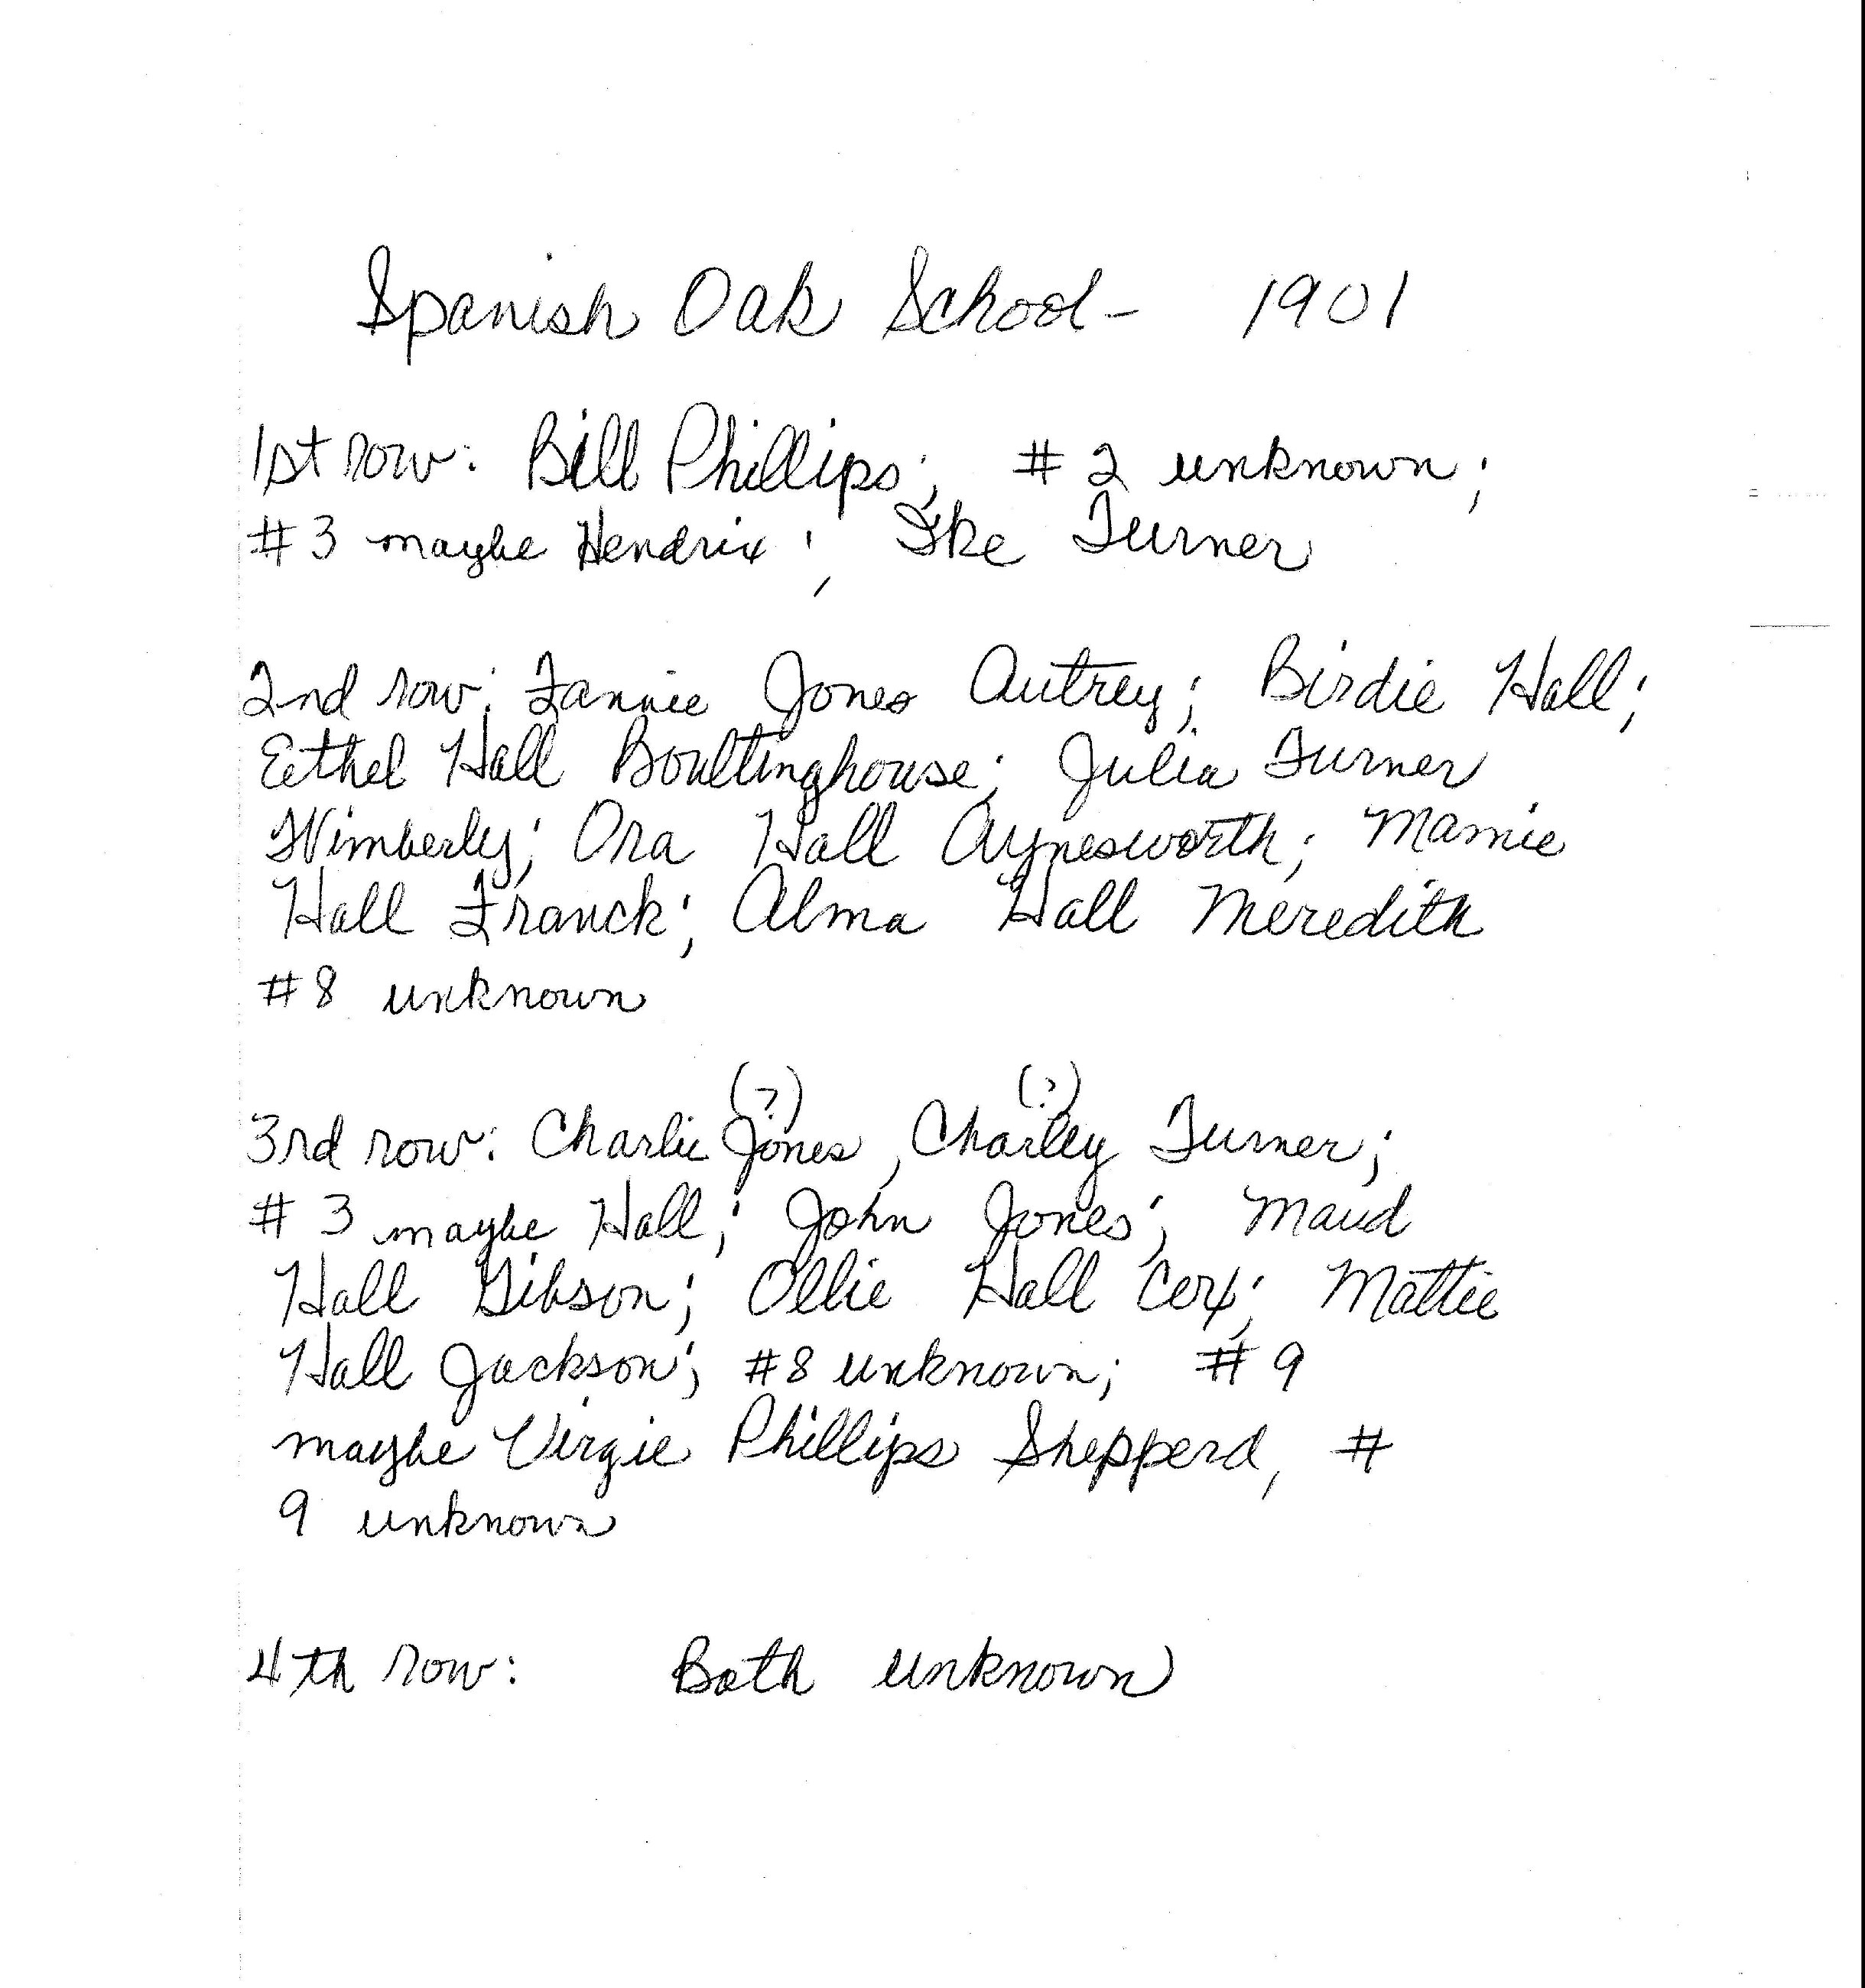 Spanish Oak School - 1901
1st row: Bill Phillips; #2 unknown;
#3 maybe Hendrix; Ike Turner
2nd row: Fannie Jones Autrey; Birdie Hall;
Ethel Hall Boultinghouse; Julia Turner
Wimberly; Ora Hall Aynesworth; Mamie
Hall Franck; Alma Hall Meredith
#8 unknown
(?) (?)
3rd row: Charlie Jones, Charley Turner;
#3 maybe Hall; John Jones; Maud
Hall Gibson; Ollie Hall Cox; Mattie
Hall Jackson; #8 unknown; #9
maybe Virgie Phillips Shepperd, #
9 unknown
4th row: Both unknown